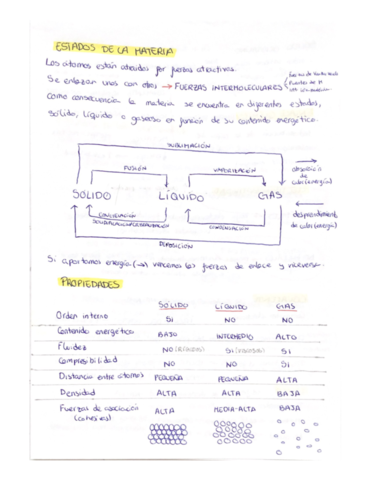 ESTADOS DE LA MATERIA
Los átomos están atraídos por fuerzas atractivas.
Se enlazan unos con otros → FUERZAS INTERMOLECULARES
Como consecuencia la materia se encuentra en diferentes estados,
sólido, líquido o gaseoso en función de su contenido energético.
SUBLIMACIÓN
FUSIÓN VAPORIZACIÓN
absorción de calor (energía)
SÓLIDO LÍQUIDO GAS
desprendimiento de calor (energía)
CONGELACIÓN
CONDENSACIÓN
DEPOSICIÓN
Si aportamos energía (→) vencemos las fuerzas de enlace y viceversa.
PROPIEDADES
SÓLIDO LÍQUIDO GAS
Orden interno SI NO NO
Contenido energético BAJO INTERMEDIO ALTO
Fluidez NO SI SI
Compresibilidad NO NO SI
Distancia entre átomos PEQUEÑA PEQUEÑA ALTA
Densidad ALTA ALTA BAJA
Fuerzas de asociación ALTA MEDIA-ALTA BAJA
(cohesión)